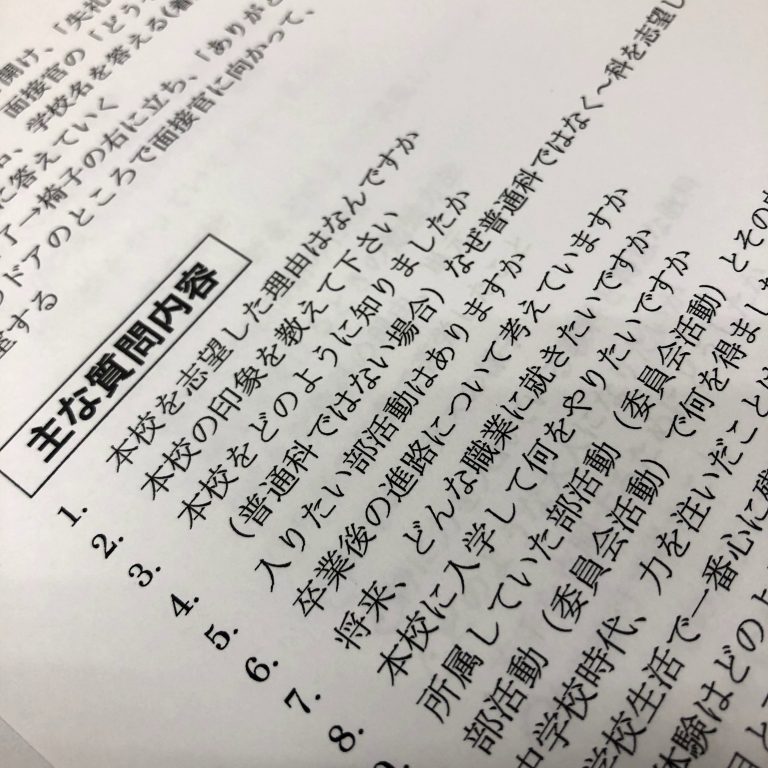 開け、「失礼
面接官の「どう
学校名を答える(着
に答えていく
了→椅子の右に立ち、「ありがと
ドアのところで面接官に向かって、
する
主な質問内容
1. 本校を志望した理由はなんですか
2. 本校の印象を教えて下さい
3. 本校をどのように知りましたか
4. (普通科ではない場合)なぜ普通科ではなく～科を志望し
5. 入りたい部活動はありますか
6. 卒業後の進路について考えていますか
7. 将来、どんな職業に就きたいですか
8. 本校に入学して何をやりたいですか
9. 所属していた部活動(委員会活動)とその
部活動(委員会活動)で何を得まし
中学校時代、力を注いだことは
学校生活で一番心に残
体験はどのよ